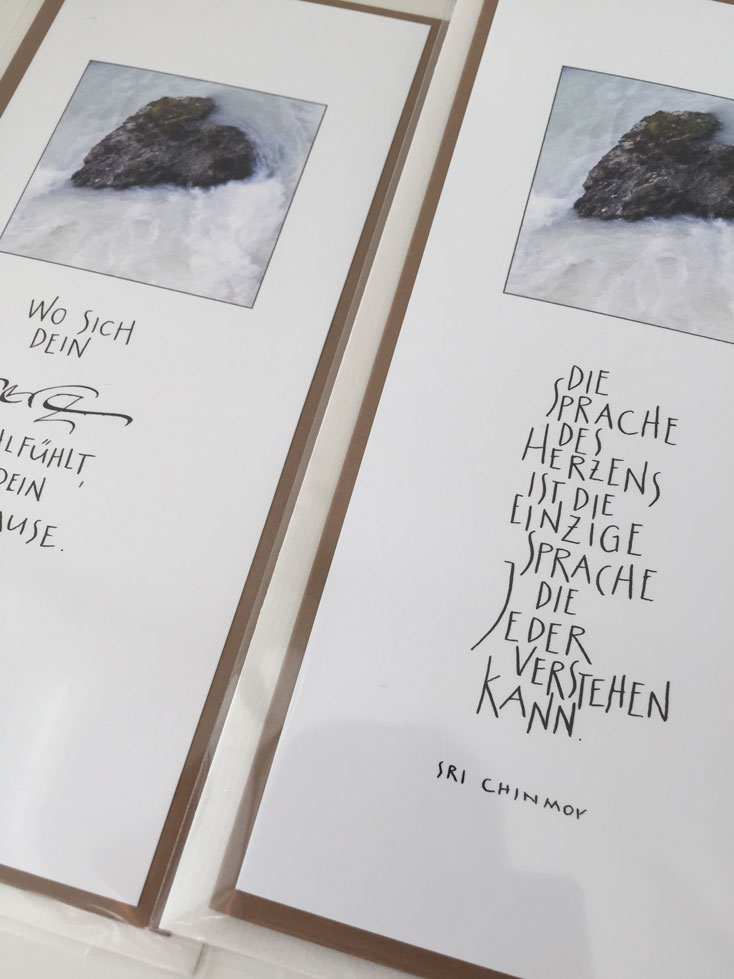 WO SICH
DEIN
erz
HLFÜHLT,
DEIN
AUSE.
DIE
SPRACHE
DES
HERZENS
IST DIE
EINZIGE
SPRACHE
DIE
JEDER
VERSTEHEN
KANN.
SRI CHINMOY